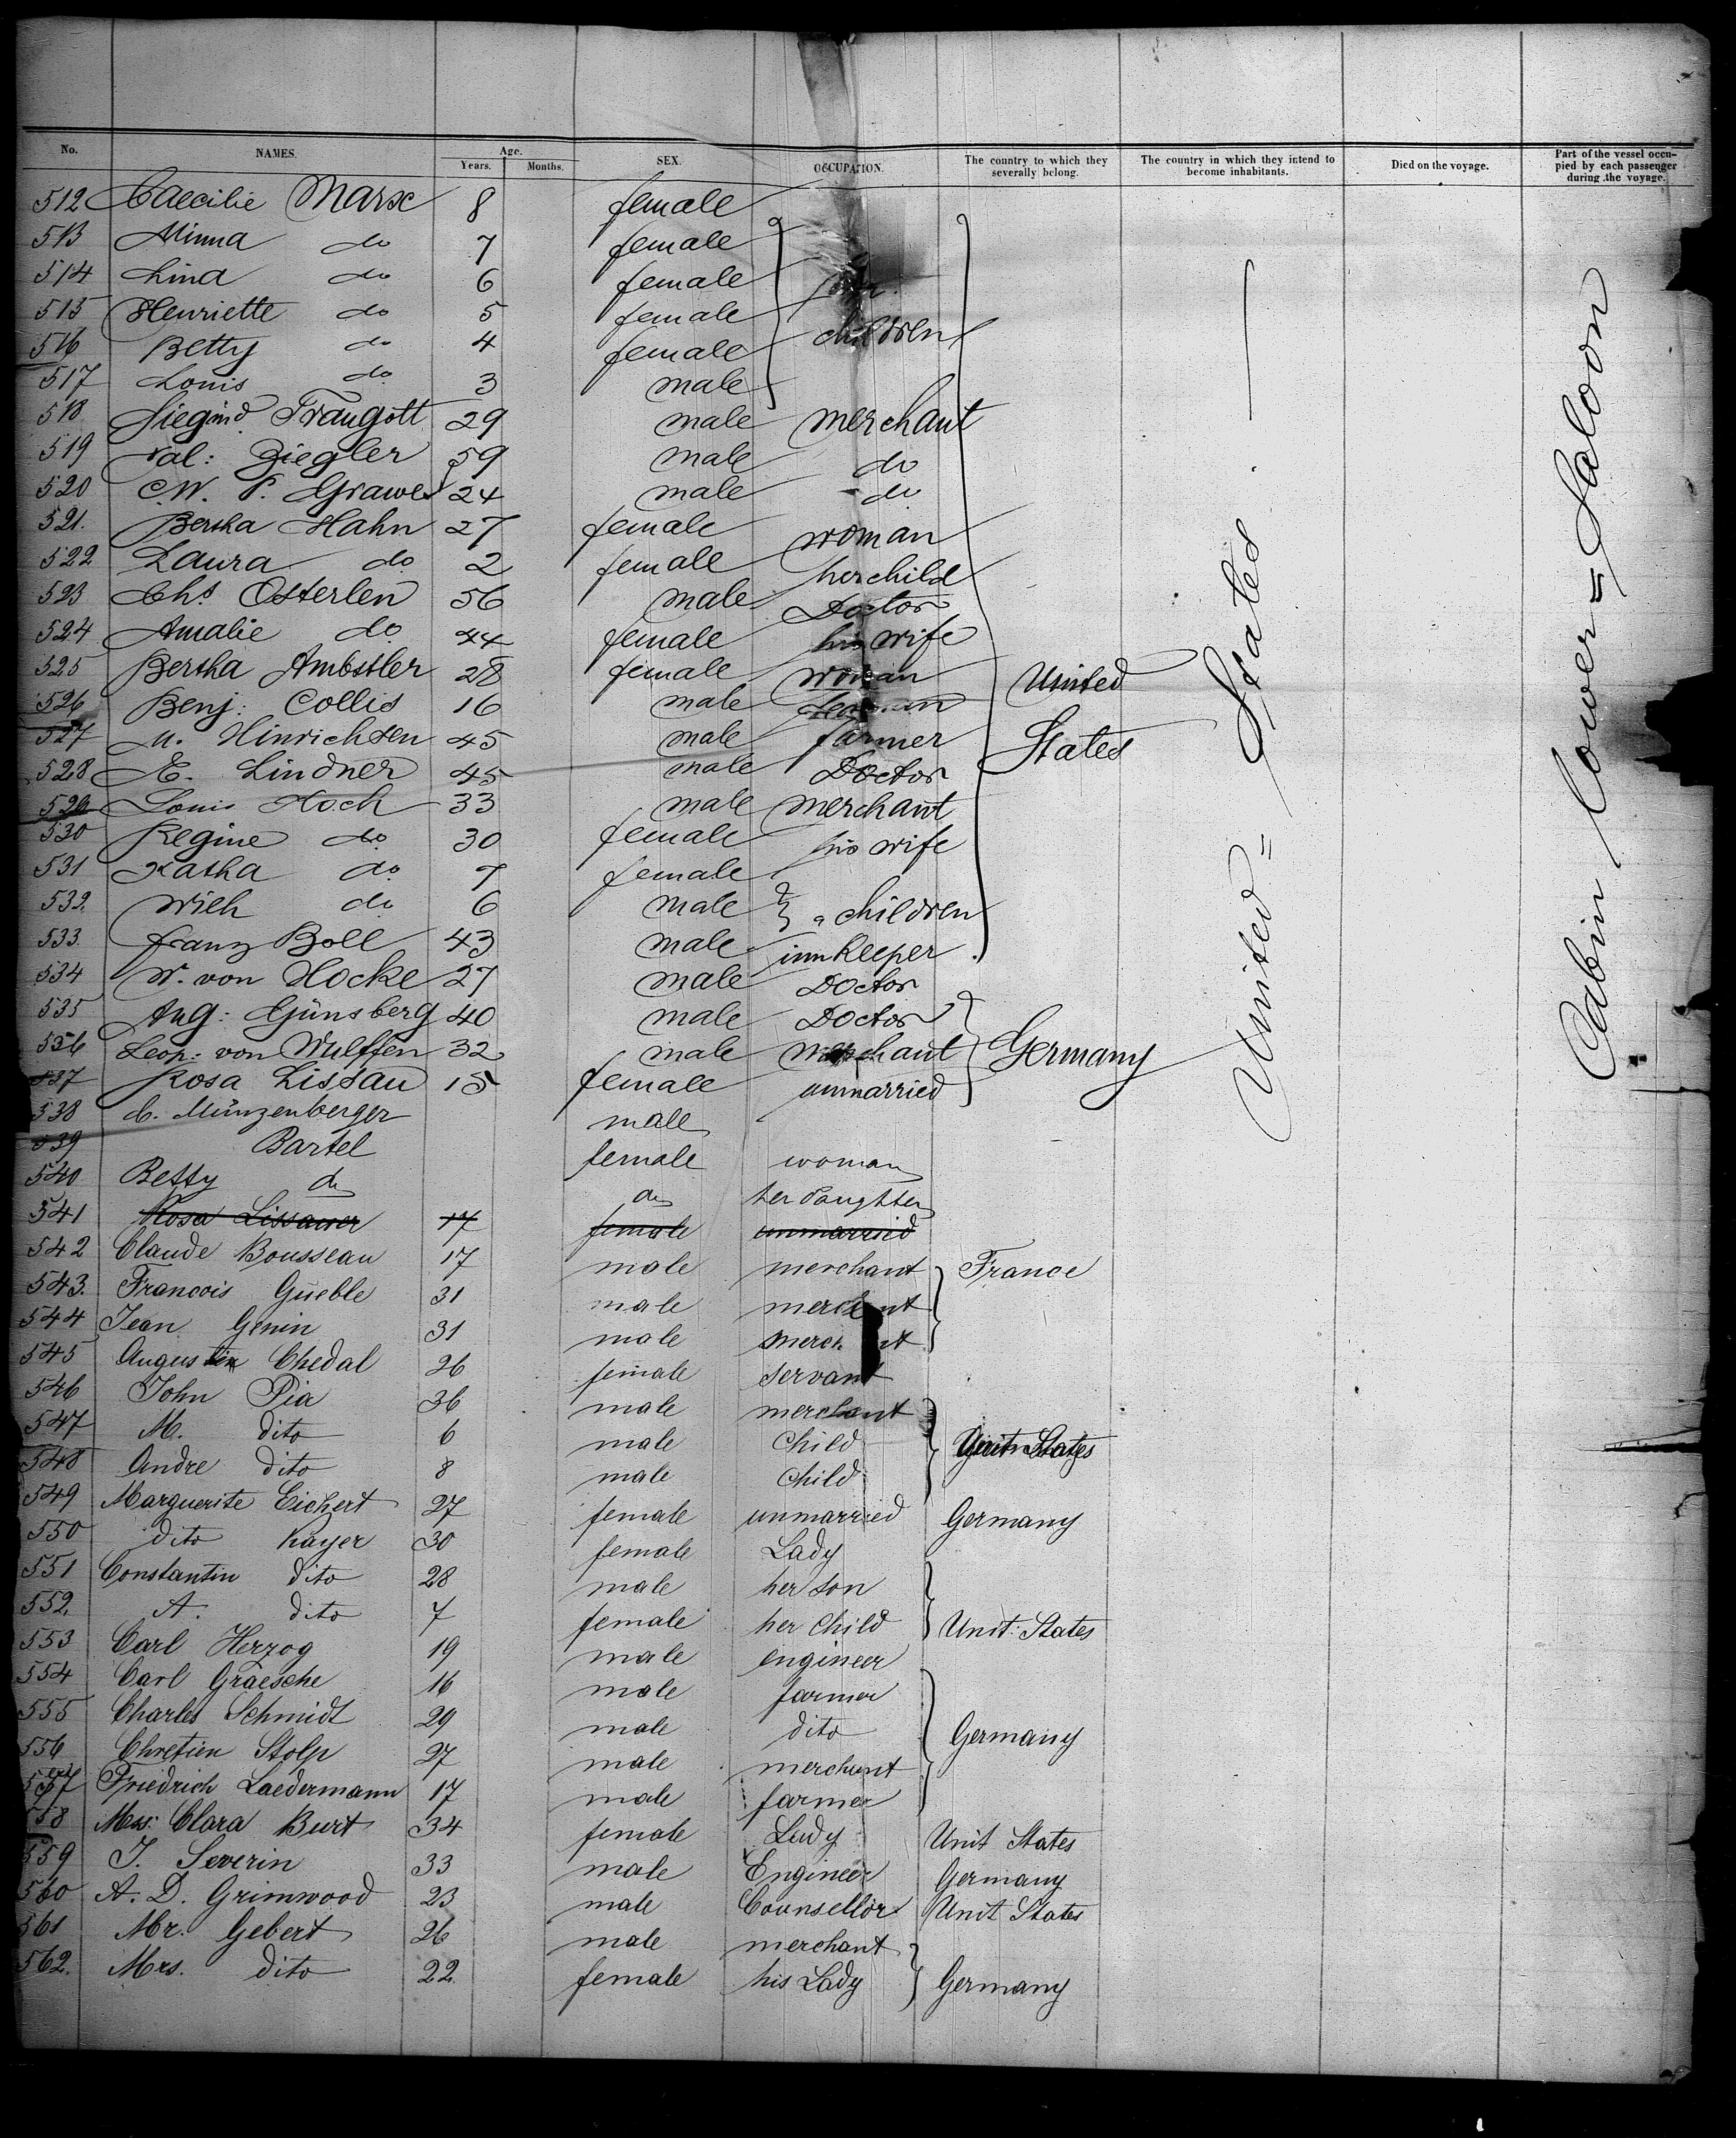 No. NAMES. Age. Years. Months. SEX. OCCUPATION. The country to which they severally belong. The country in which they intend to become inhabitants. Died on the voyage. Part of the vessel occupied by each passenger during the voyage.
512 Caecilie Marx 8 female
513 Minna do 7 female
514 Lina do 6 female
515 Henriette do 5 female
516 Betty do 4 female children
517 Louis do 3 male
518 Siegmd. Traugott 29 male merchant
519 Val: Ziegler 59 male do
520 C.W. P. Grawe 24 male do
521. Bertha Hahn 27 female woman
522 Laura do 2 female her child
523 Chs Osterlen 56 male Doctor
524 Amalie do 44 female his wife
525 Bertha Ambstler 28 female woman United
526 Benj: Collis 16 male
527 M. Hinrichsen 45 male farmer States
528 E. Lindner 45 male Doctor
529 Louis Hoch 33 male merchant
530 Regine do 30 female his wife
531 Katha do 7 female
532. Wilh do 6 male children
533. Franz Boll 43 male innkeeper
534 W. von Hocke 27 male Doctor
535 Aug: Günsberg 40 male Doctor
536 Leop: von Wulffen 32 male merchant Germany
537 Rosa Lissau 15 female unmarried
538 C. Münzenberger male
539 Bartel female woman
540 Betty do do her daughter
541 Rosa Lissauer 17 female unmarried
542 Claude Bousseau 17 male merchant France
543. Francois Gueble 31 male merchant
544 Jean Genin 31 male merchant
545 Augustin Chedal 26 female servant
546 John Pia 36 male merchant
547 M. dito 6 male Child Unit States
548 Andre dito 8 male Child
549 Marguerite Eichert 27 female unmarried Germany
550 dito Kayer 30 female Lady
551 Constantin dito 28 male her son
552. A. dito 7 female her Child Unit: States
553 Carl Herzog 19 male engineer
554 Carl Graesche 16 male farmer
555 Charles Schmidt 29 male dito Germany
556 Chretien Stolp 27 male merchant
557 Friedrich Laedermann 17 male farmer
558 Mss: Clara Burt 34 female Lady Unit States
559 J. Severin 33 male Engineer Germany
560 A. D. Grimwood 23 male Counsellor Unit States
561 Mr. Gebert 26 male merchant
562. Mrs. dito 22 female his Lady Germany
United = States
Cabin Lower = Saloon